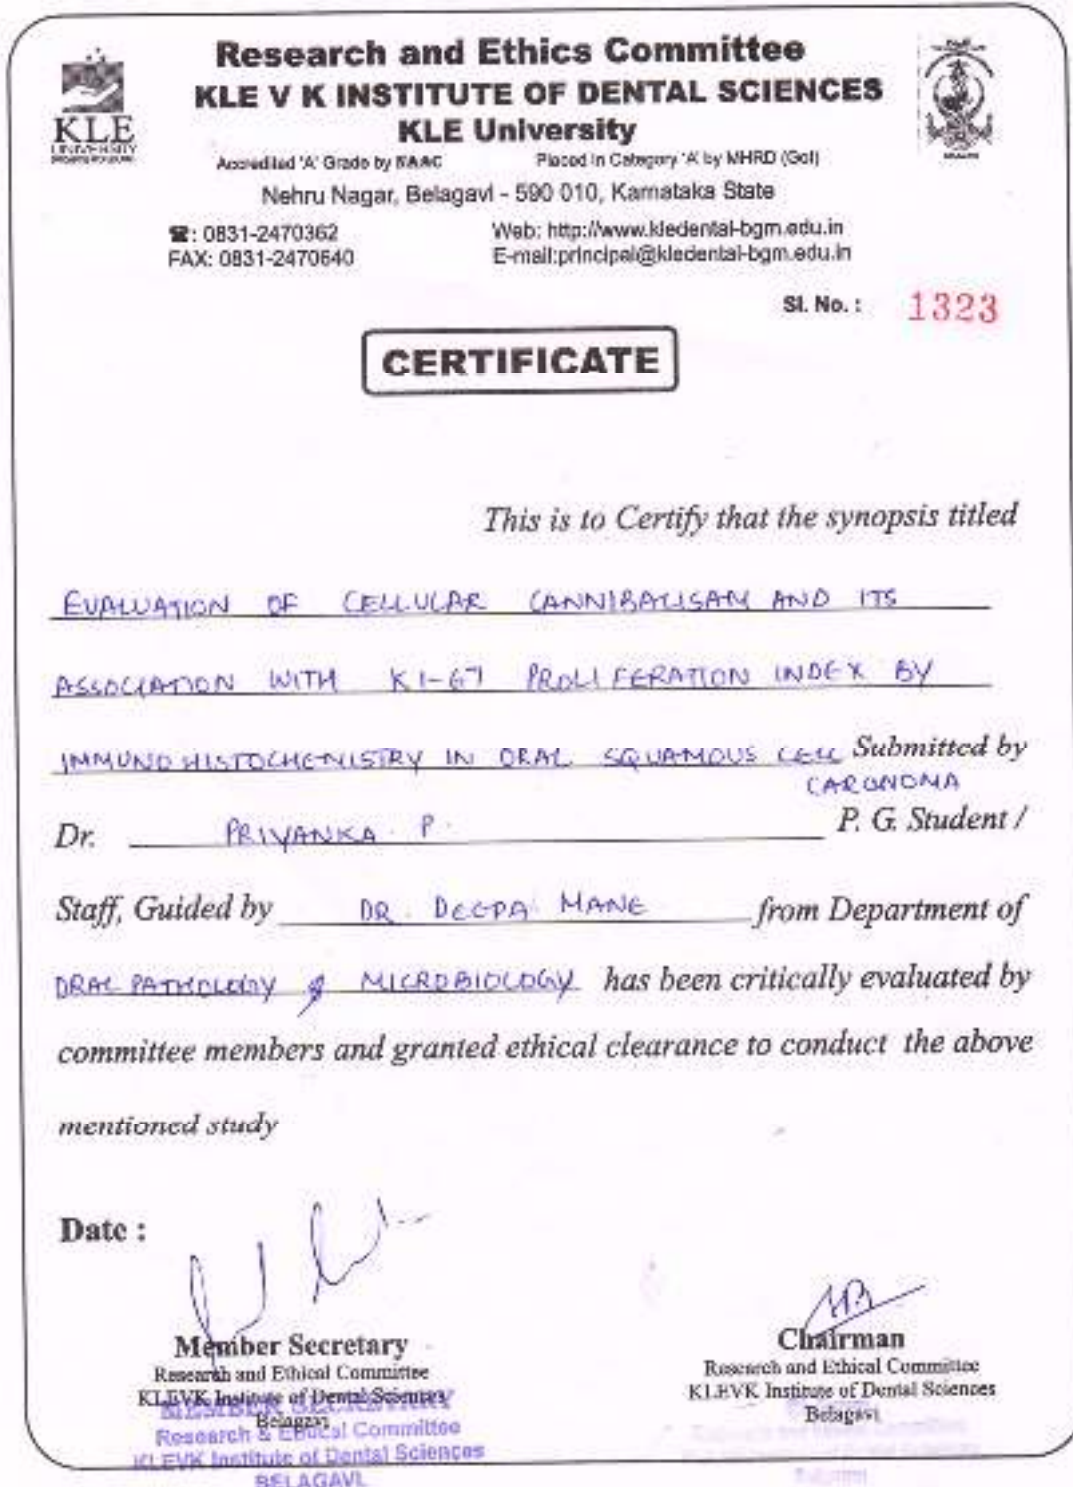 Research and Ethics Committee
KLE V K INSTITUTE OF DENTAL SCIENCES
KLE University
KLE
UNIVERSITY
Accredited 'A' Grade by NAAC Placed in Category 'A' by MHRD (GoI)
Nehru Nagar, Belagavi - 590 010, Karnataka State
☎: 0831-2470362 Web: http://www.kledental-bgm.edu.in
FAX: 0831-2470640 E-mail:principal@kledental-bgm.edu.in
Sl. No.: 1323
CERTIFICATE
This is to Certify that the synopsis titled
EVALUATION OF CELLULAR CANNIBALISAM AND ITS
ASSOCIATION WITH KI-67 PROLIFERATION INDEX BY
IMMUNOHISTOCHEMISTRY IN ORAL SQUAMOUS CELL Submitted by
CARCINOMA
Dr. PRIYANKA. P. P. G. Student /
Staff, Guided by DR. DEEPA MANE from Department of
ORAL PATHOLOGY & MICROBIOLOGY has been critically evaluated by
committee members and granted ethical clearance to conduct the above
mentioned study
Date :
Member Secretary
Research and Ethical Committee
KLEVK Institute of Dental Sciences
Belagavi
MEMBER SECRETARY
Research & Ethical Committee
KLEVK Institute of Dental Sciences
BELAGAVI.
Chairman
Research and Ethical Committee
KLEVK Institute of Dental Sciences
Belagavi